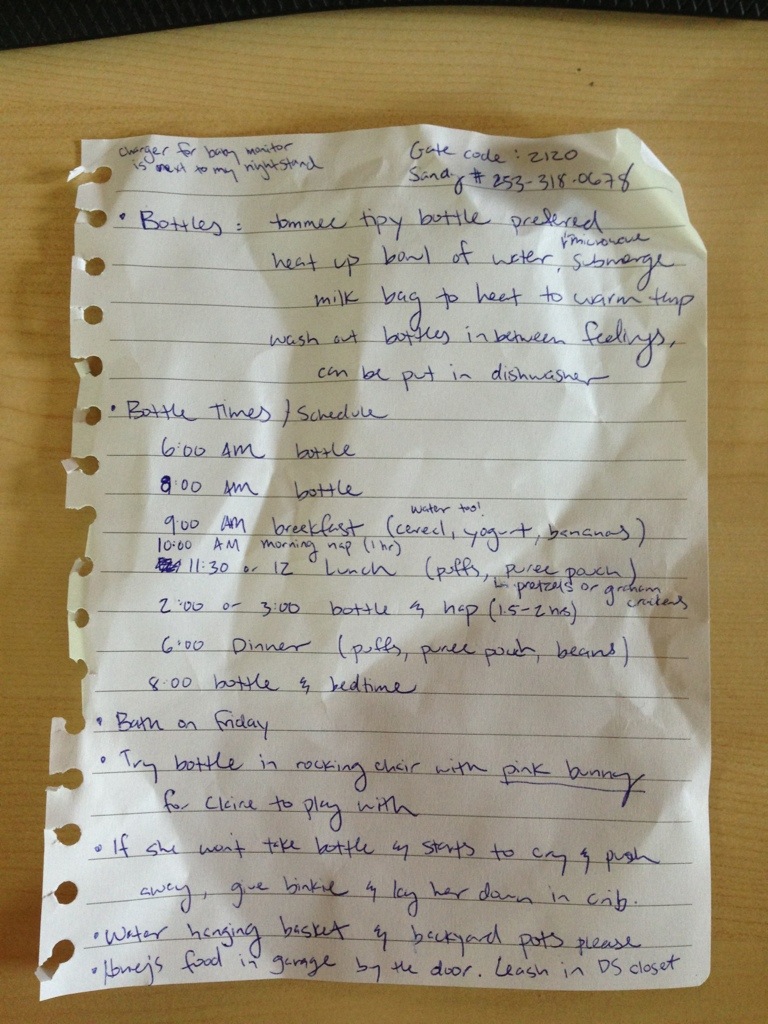 charger for baby monitor
is next to my nightstand
Gate code: 2120
Sandy # 253-318-0678
• Bottles: tommee tipy bottle prefered
heat up bowl of water, submerge
↑microwave
milk bag to heet to warm temp
wash out bottles in between feelings,
can be put in dishwasher
• Bottle Times / Schedule
6:00 AM bottle
8:00 AM bottle
water too!
9:00 AM breekfast (cereal, yogurt, bananas)
10:00 AM morning nap (1 hr)
11:30 or 12 Lunch (puffs, puree pouch)
↳ pretzels or graham
crackers
2:00 or 3:00 bottle & nap (1.5-2 hrs)
6:00 Dinner (puffs, puree pouch, beans)
8:00 bottle & bedtime
• Bath on Friday
• Try bottle in rocking chair with pink bunny
for Claire to play with
• If she won't take bottle & starts to cry & push
away, give binkie & lay her down in crib.
• Water hanging basket & backyard pots please
• food in garage by the door. Leash in DS closet